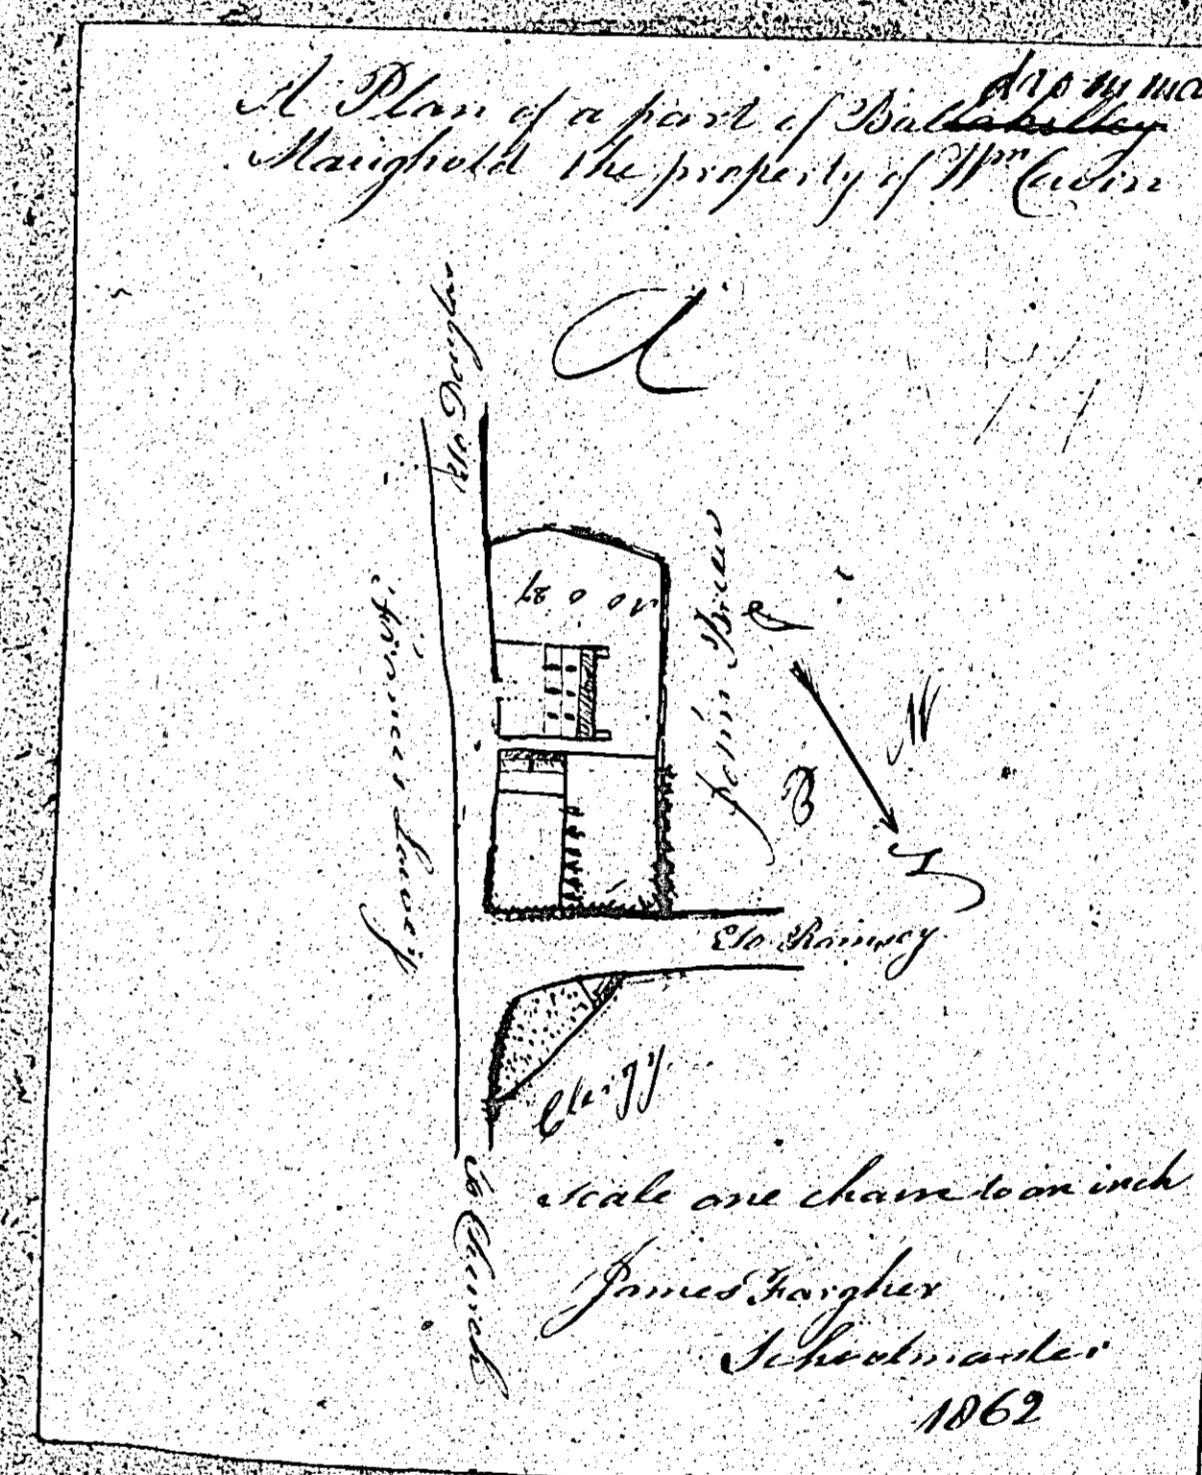 A Plan of a part of Balladromma
Maughold the property of Wm Cavin
A
To Douglas
0 0 27
John Brew
B
N
S
To Ramsey
Clergy
To Church
Scale one chain to an inch
James Fargher
Schoolmaster
1862